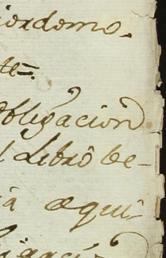 iordomo.
te=.
obligacion
l Libro be-
a aqui